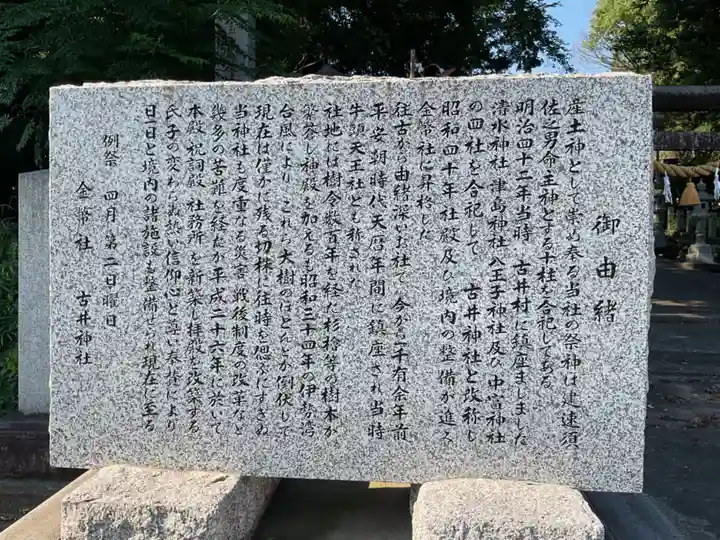 御由緒
産土神として崇め奉る当社の祭神は建速須
佐之男命主神とする十柱を合祀してある
明治四十二年当時 古井村に鎮座ましました
清水神社 津島神社 八王子神社及び中宮神社
の四社を合祀して 古井神社と改称し
昭和四十年社殿及び境内の整備が進み
金幣社に昇格した
往古から由緒深いお社で 今から千有余年前
平安朝時代天暦年間に鎮座され当時
牛頭天王社とも称された
社地には樹令数百年を経た杉桧等の樹木が
繁茂し神厳を加えるも昭和三十四年の伊勢湾
台風により これら大樹のほとんどが倒伏して
現在は僅かに残る切株に往時を偲ぶにすぎぬ
当神社も度重なる災害 戦後制度の改革など
幾多の苦難を経たが平成二十六年に於いて
本殿 祝詞殿 社務所を新築し拝殿を改築する
氏子の変わらぬ熱い信仰心と尊い奉賛により
日日と境内の諸施設も整備せられ現在に至る
例祭 四月 第二日曜日
金幣社 古井神社